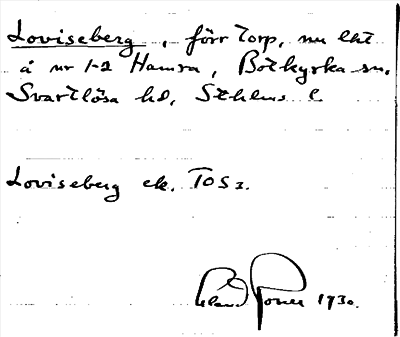 Loviseberg, förr torp, nu lht
å nr 1-2 Hamra, Botkyrka sn.
Svartlösa hd, Sthlms l.
Loviseberg ek. TOS 3.
1930.